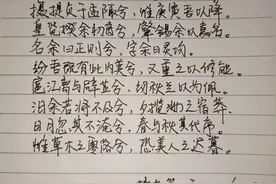 摄提贞于孟陬兮，惟庚寅吾以降。
皇览揆余初度兮，肇锡余以嘉名。
名余曰正则兮，字余曰灵均。
纷吾既有此内美兮，又重之以修能。
扈江离与辟芷兮，纫秋兰以为佩。
汩余若将不及兮，
日月忽其不淹兮，春与秋其代序。
惟草木之零落兮，恐美人之迟暮。